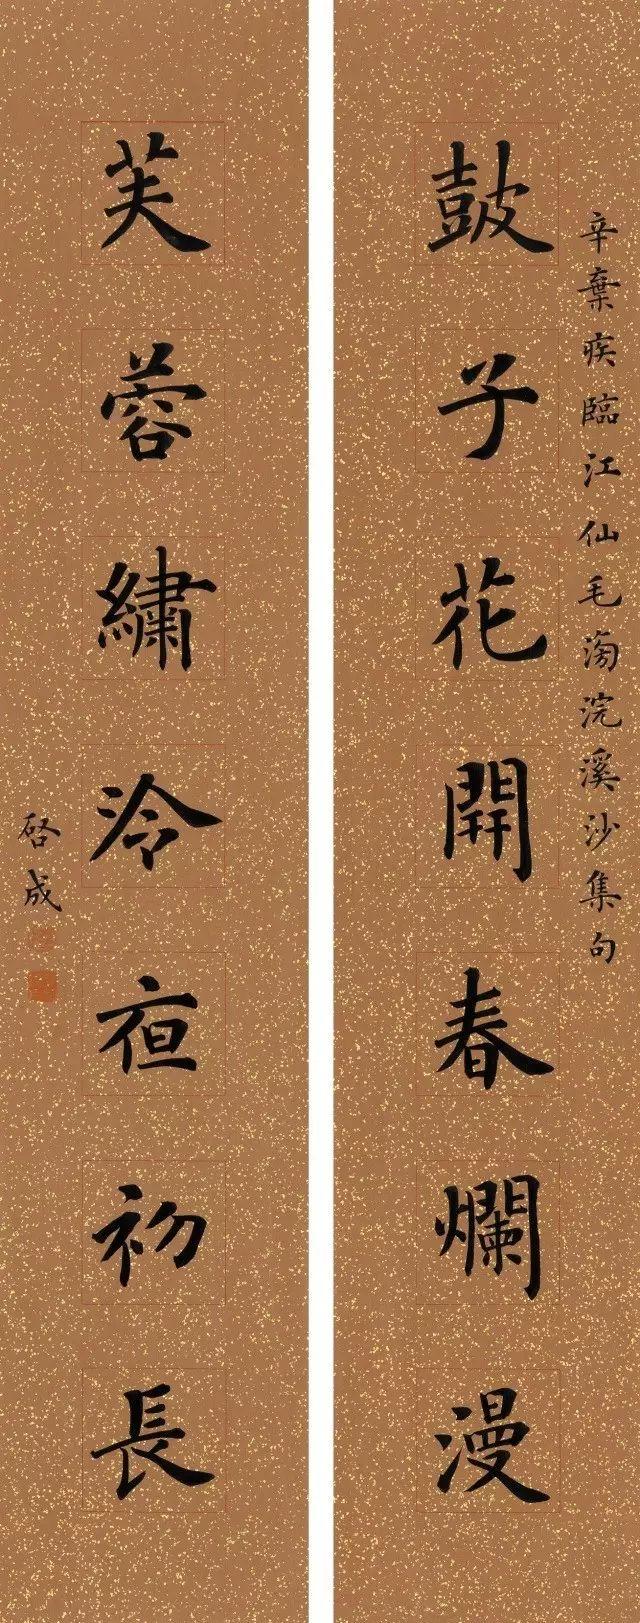 辛棄疾臨江仙毛滂浣溪沙集句
皷子花開春爛漫
芙蓉繡冷亱初長
啓成